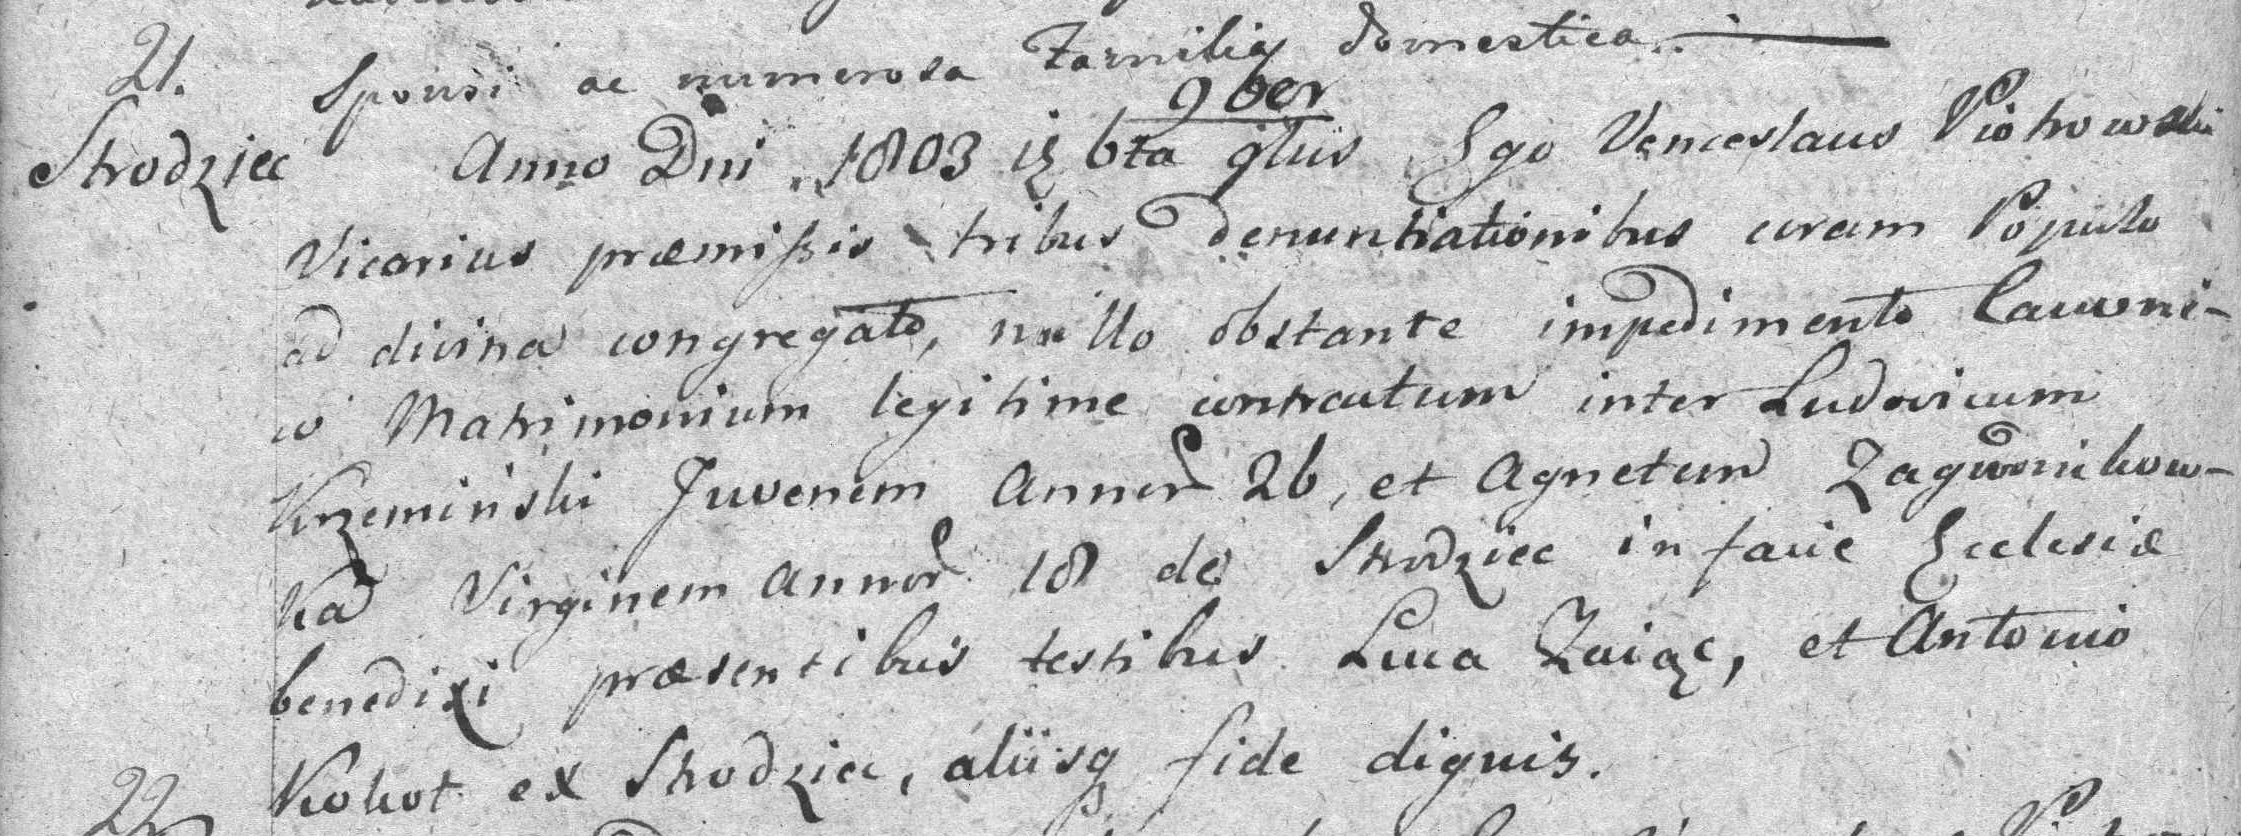 21.
Sponsi ac numerosa Familia domestica.
Skrodziec
9ber
Anno Dni 1803 Ego Venceslaus Piotrowski
Vicarius præmissis tribus denuntiationibus coram Populo
ad divina congregato, nullo obstante impedimento Canoni-
co Matrimonium legitime contractum inter Ludovicum
Krzemiński Juvenem Annor 26, et Agnetem Zagwonikow-
ka Virginem Annor 18 de Skrodziec in facie Ecclesiæ
benedixi præsentibus testibus Luca Zaiąc, et Antonio
Kokot ex Skrodziec, aliisq fide dignis.
22